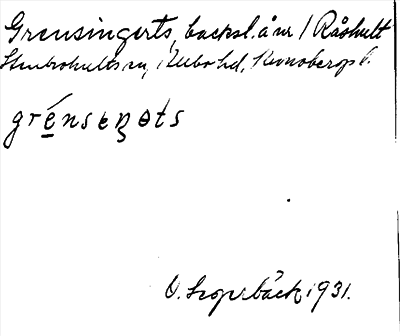 Grensingerts, backsl. å nr 1 Råshult
Stenbrohults sn, Allbo hd, Kronobergs l.
grénseŋəts
1931.